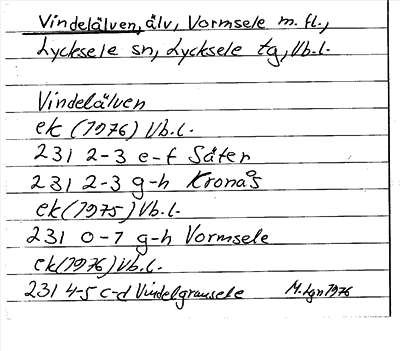 Vindelälven, älv, Vormsele m. fl.,
Lycksele sn, Lycksele tg, Vb.l.
Vindelälven
ek (1976) Vb.l.
231 2-3 e-f Säter
231 2-3 g-h Kronås
ek (1975) Vb.l.
231 0-1 g-h Vormsele
ek (1976) Vb.l.
231 4-5 c-d Vindelgransele M. Lgn 1976